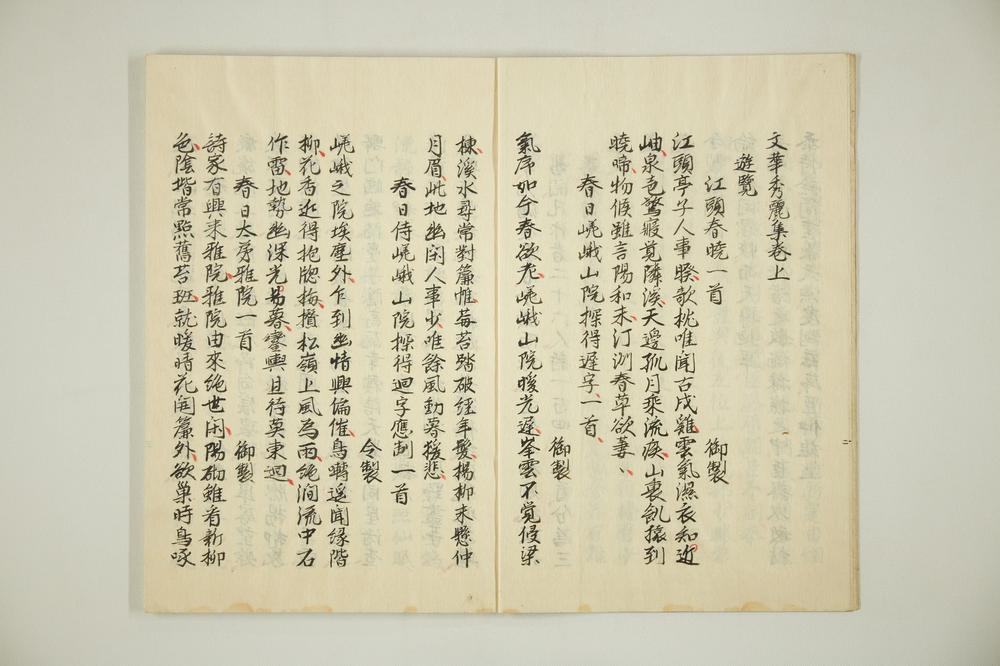 文華秀麗集巻上
遊覽
江頭春曉一首
御製
江頭亭子人事睽欹枕唯聞古戍雞雲氣濕衣知近
岫泉色驚寢覓隣溪天邊孤月乘流疾山裏飢猿到
曉啼物候雖言陽和未汀洲春草欲萋〻
春日嵯峨山院探得遲字一首
御製
氣序如今春欲老嵯峨山院暖光遲峯雲不覺侵梁
棟溪水尋常對簾帷莓苔踏破經年髮楊柳未懸仲
月眉此地幽閑人事少唯餘風動暮猿悲
春日侍嵯峨山院探得迴字應制一首
令製
嵯峨之院埃塵外乍到幽情興偏催鳥囀遥聞緣階
柳花香近得抱牎梅攢松嶺上風為雨絶澗流中石
作雷地勢幽深光易暮鑾輿且待莫東迴
春日太弟雅院一首
御製
詩家有興来雅院雅院由來絶世閑陽砌雖看新柳
色陰堦常點舊苔班就暖時花開簾外欲巢時鳥啄